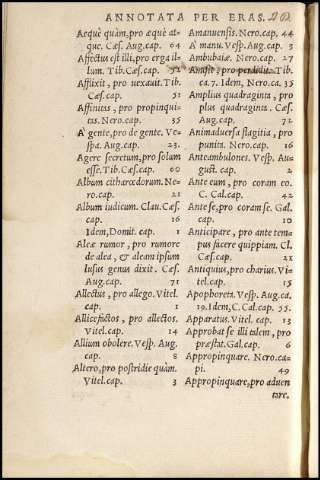 ANNOTATA PER ERAS.
Aequè quàm, pro aequè at-
que. Caes. Aug. cap. 64
Affectus est illi, pro erga il-
lum. Tib. Caes. cap. 52
Afflixit, pro uexauit. Tib.
Caes. cap. 51
Affinitas, pro propinqui-
tas. Nero. cap. 35
A' gente, pro de gente. Ve-
spa. Aug. cap. 23.
Agere secretum, pro solum
esse. Tib. Caes. cap. 60
Album citharoedorum. Ne-
ro. cap. 21
Album iudicum. Clau. Caes.
cap. 16
Idem, Domit. cap. 1
Aleae rumor, pro rumore
de alea, & aleam ipsum
lusus genus dixit. Caes.
Aug. cap. 71
Allectus, pro allego. Vitel.
cap. 1
Allicefactos, pro allectos.
Vitel. cap. 14
Allium obolere. Vesp. Aug.
cap. 8
Altero, pro postridie quàm.
Vitel. cap. 3
Amanuensis. Nero. cap. 44
A' manu. Vesp. Aug. cap. 3
Ambubaiae. Nero. cap. 27
Amisit, pro perdidit. Tib.
ca. 7. Idem, Nero ca. 35
Amplius quadraginta, pro
plus quadraginta. Caes.
Aug. cap. 77
Animaduersa flagitia, pro
punita. Nero cap. 16
Anteambulones. Vesp. Au-
gust. cap. 2
Ante eum, pro coram eo.
C. Cal. cap. 42
Ante se, pro coram se. Gal.
cap. 10
Anticipare, pro ante tem-
pus facere quippiam. Cl.
Caes. cap. 21
Antiquius, pro charius. Vi-
tel. cap. 15
Apophoreta. Vesp. Aug. ca.
19. Idem, C. Cal. cap. 55.
Apparatus. Vitel. cap. 13
Approbat se illi talem, pro
praestat. Gal. cap. 6
Appropinquare. Nero. ca-
pi. 49
Appropinquare, pro aduen
tare.